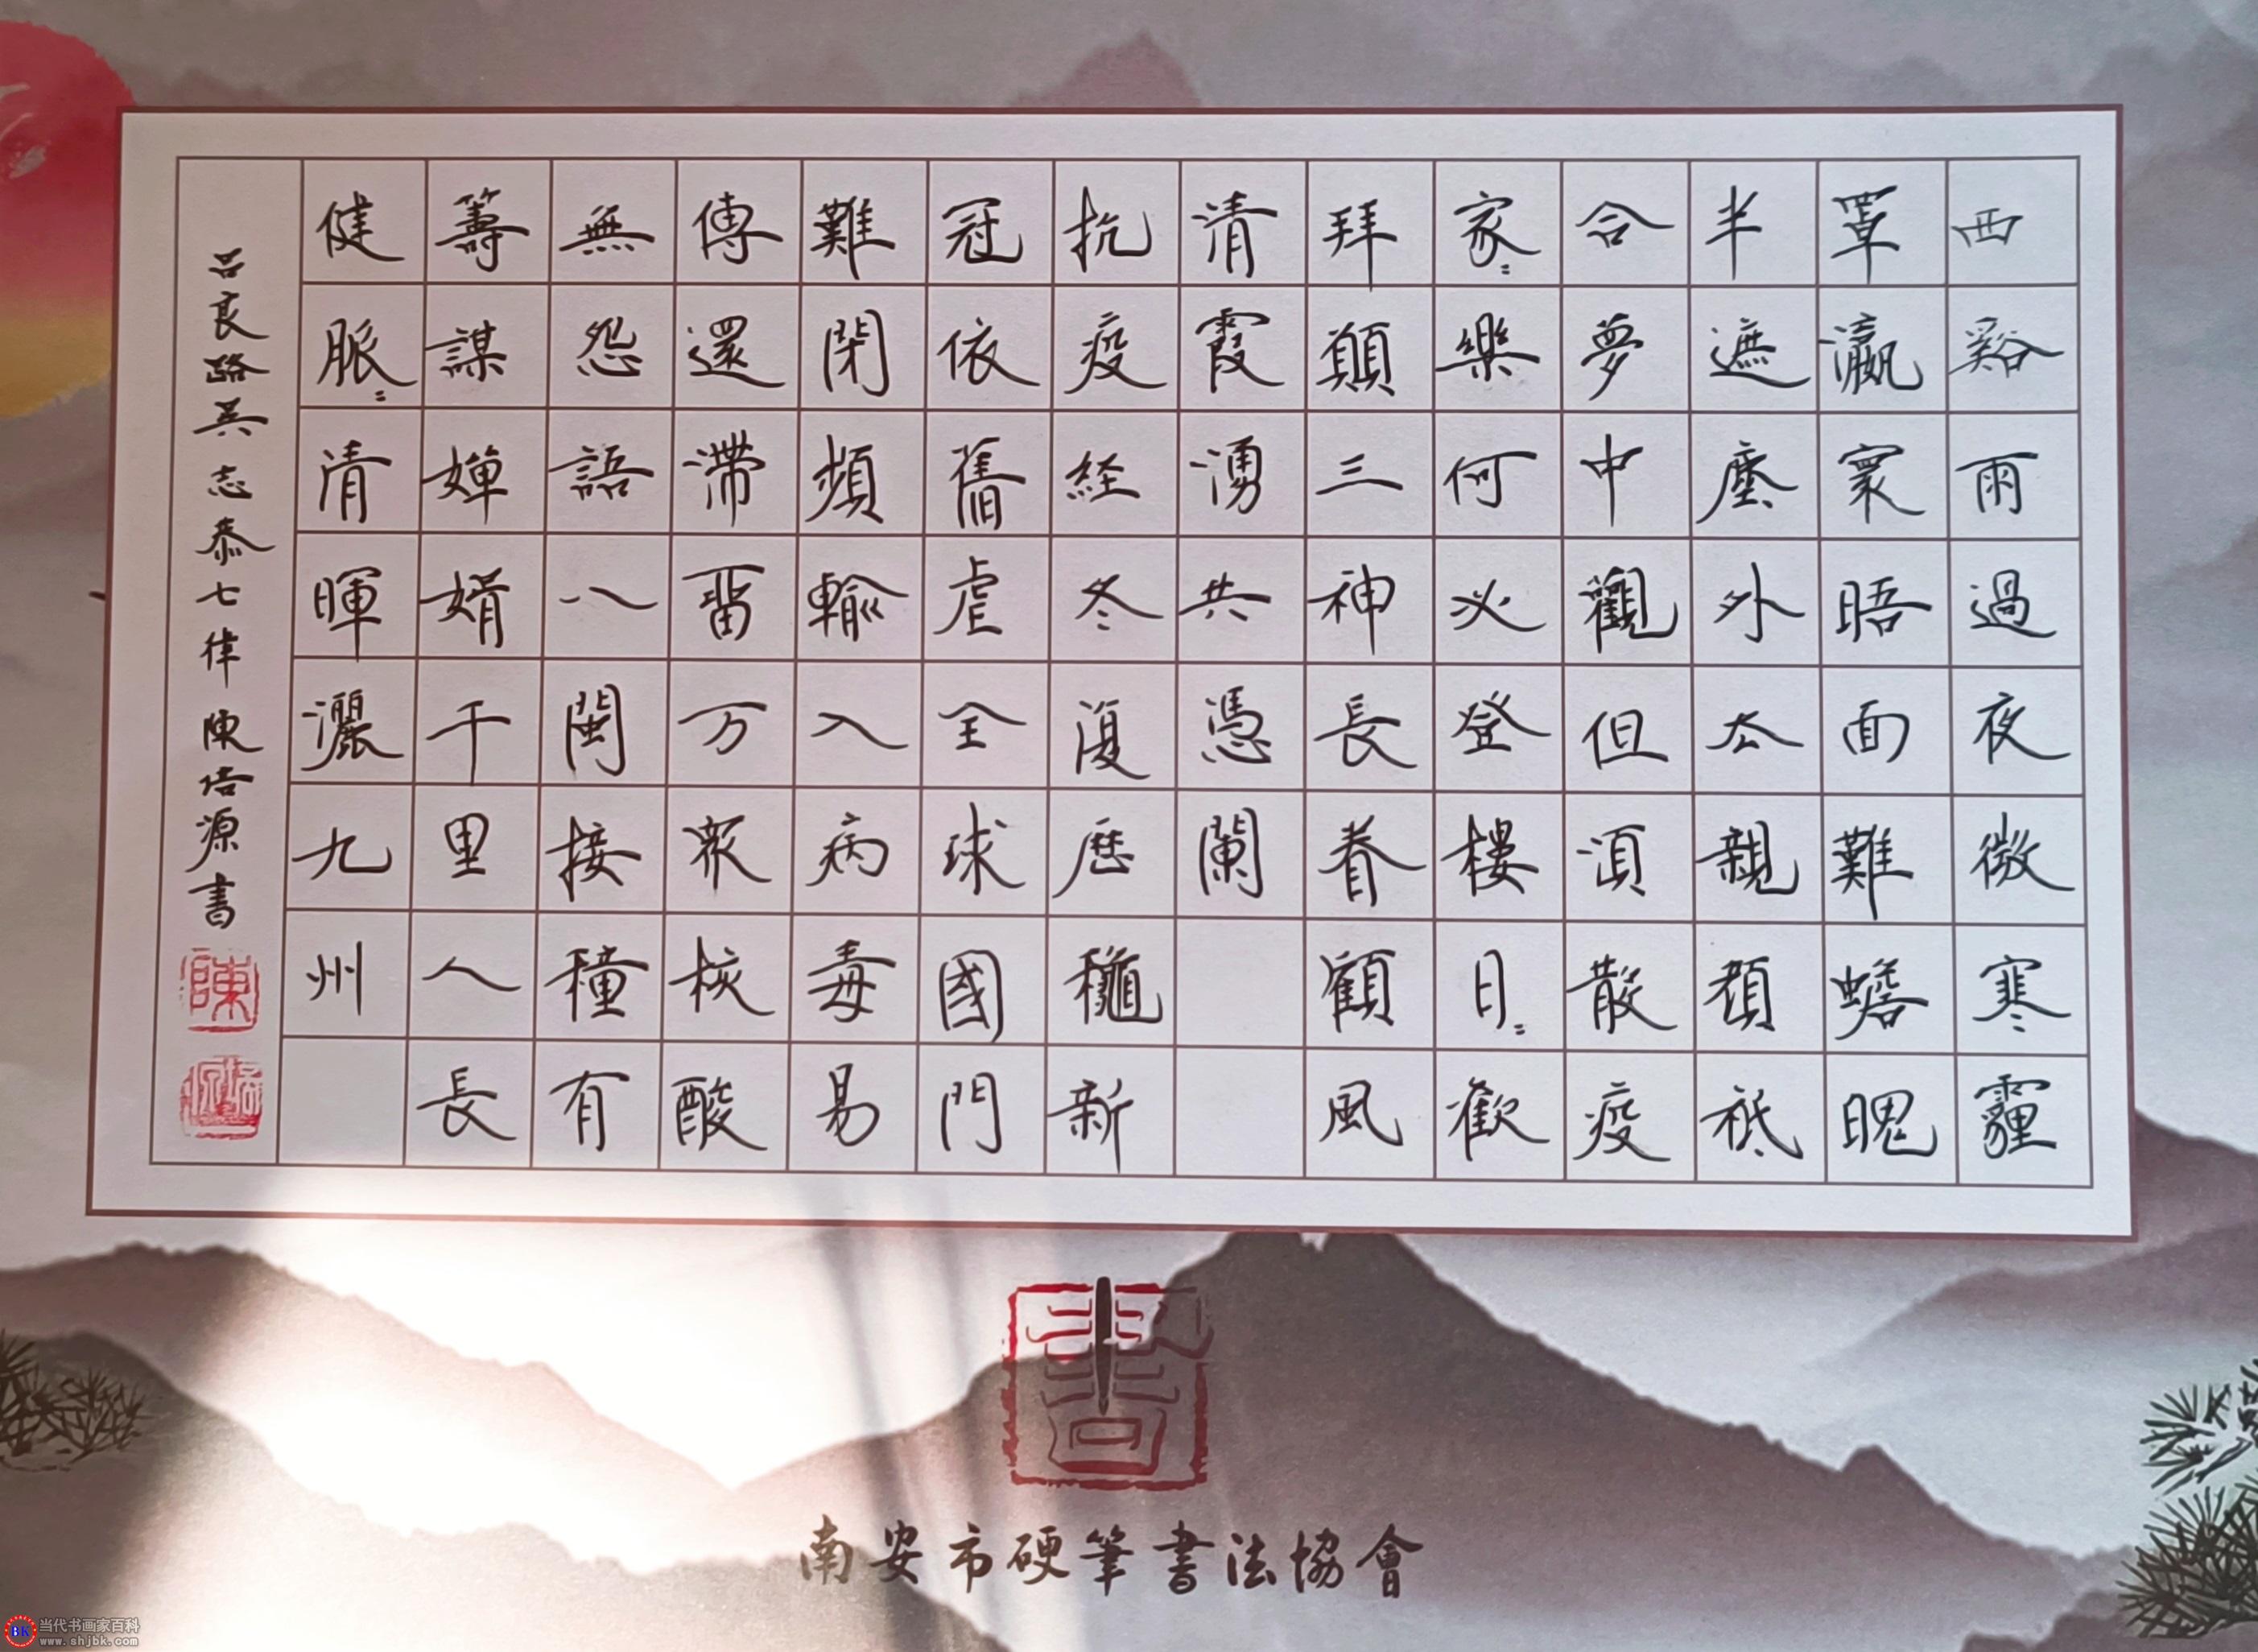 西谿雨過夜微寒霾
罩瀛寰晤面難蟾䫥
半遮塵外太親顏祇
合夢中觀但須散疫
家〻樂何必登樓日〻歡
拜願三神長眷顧風
清霞湧共憑闌
抗疫経冬復歷穐新
冠依舊虐全球國門
難閉頻輸入病毒易
傳還滯留万眾核酸
無怨語八閩接種有
籌謀嬋娟千里人長
健脈〻清暉灑九州
呂良路吳志泰七律 陳培源書
陳
南安市硬筆書法協會
当代书画家百科
www.shjbk.com
BK